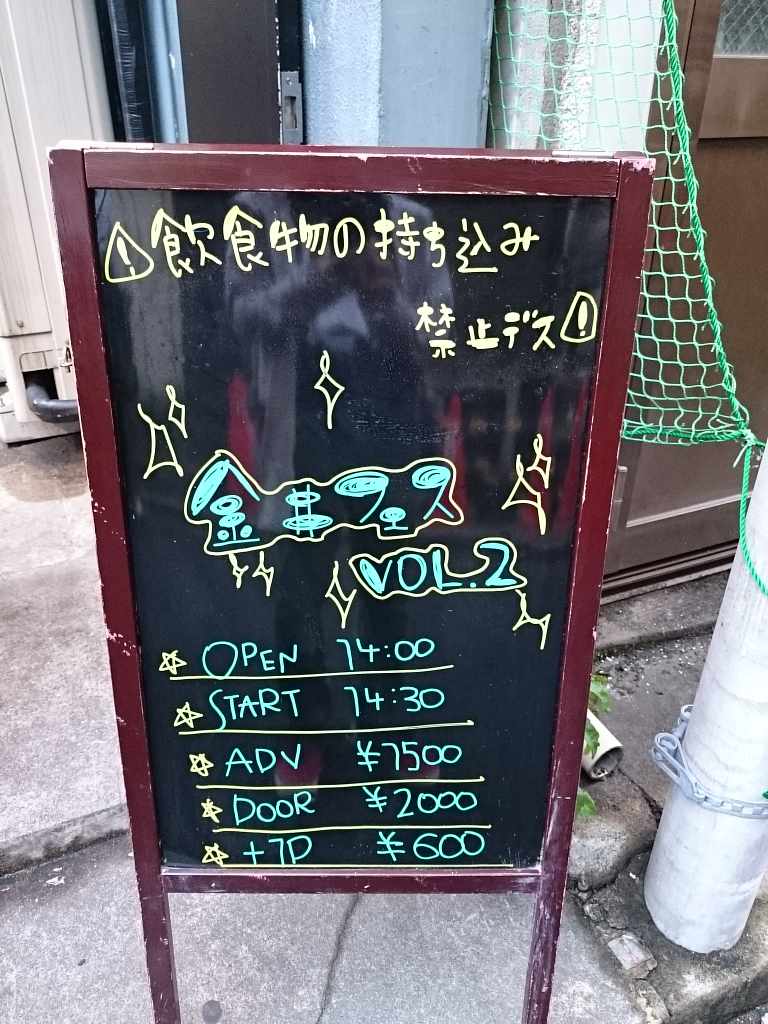 ⚠飲食物の持ち込み
禁止デス⚠
金井フェス
VOL.2
☆ OPEN 14:00
☆ START 14:30
☆ ADV ¥1500
☆ DOOR ¥2000
☆ +1D ¥600